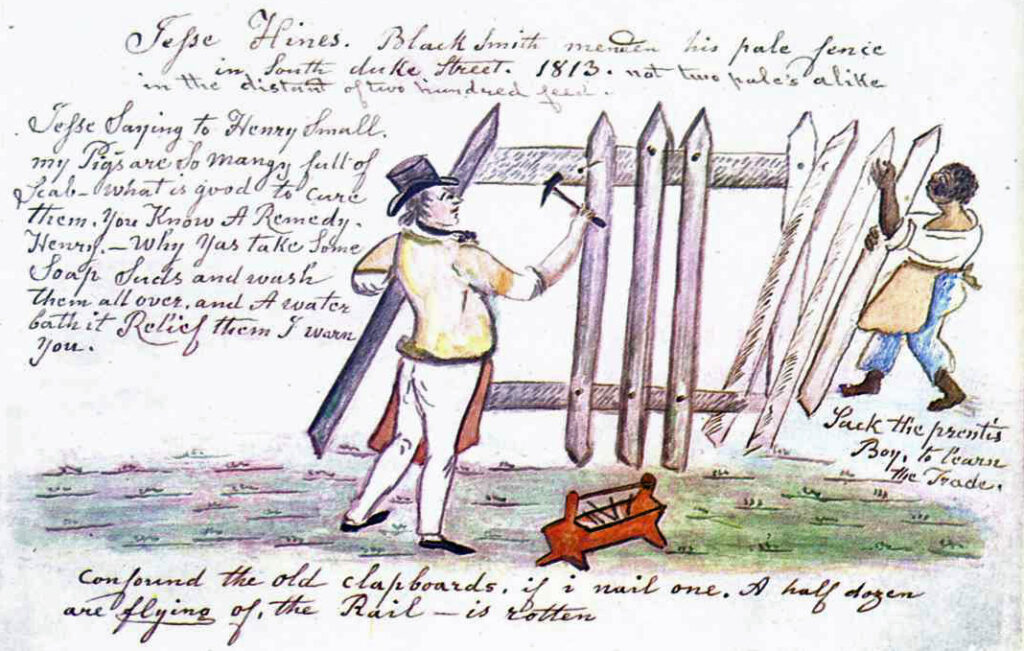 Jesse Hines. Black Smith menden his pale fence
in South duke Street. 1813. not two pale's alike
in the distant of two hundred feed.
Jesse Saying to Henry Small.
my Pigs are So mangy full of
Scab - what is good to Cure
them. You Know A Remedy.
Henry. - Why Yas take Some
Soap Suds and wash
them all over. and A water
bath it Relief them I warn
You.
Jack the prentis
Boy, to learn
the Trade.
Confound the old clapboards. if i nail one. A half dozen
are flying of, the Rail - is rotten